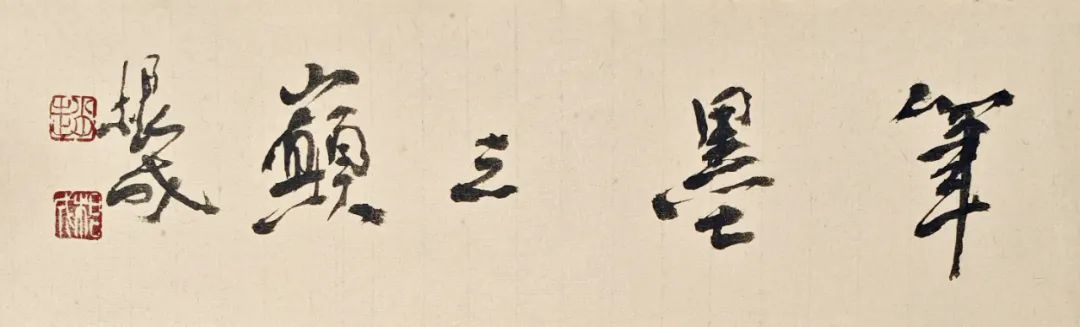 筆墨之巔
根成